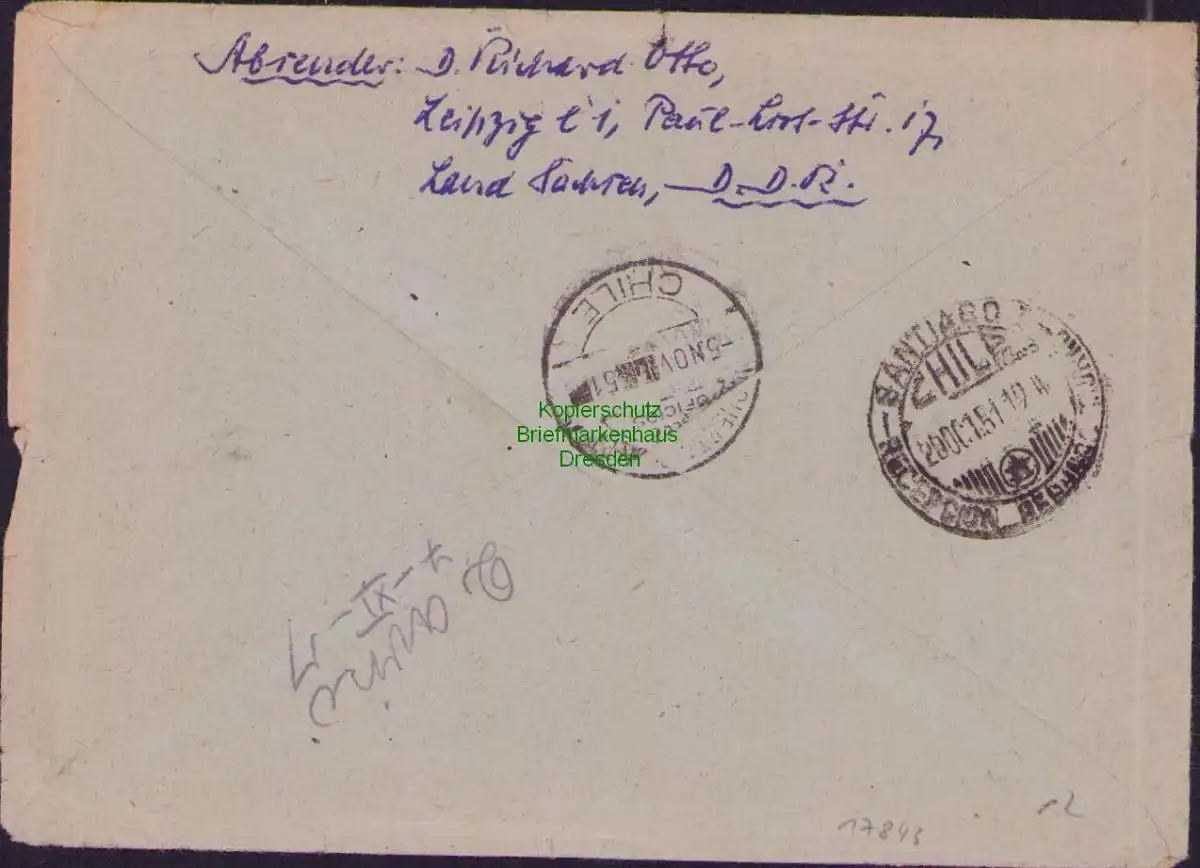 Absender: D. Richard Otto,
Leipzig C 1, Paul-List-Str. 17,
Land Sachsen, D.D.R.
CHILE
-5.NOV 51
SANTIAGO
CHILE
20 OCT.51 19
RECEPCION
Kopierschutz
Briefmarkenhaus
Dresden
17843